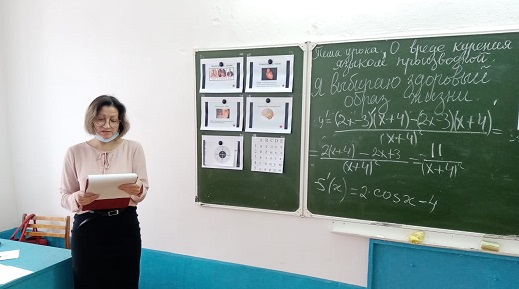 Тема урока: О вреде курения
языком производной.
Я выбираю здоровый
образ жизни
y'=(2x-3)'(x+4)-(2x-3)(x+4)'/(x+4)²=
=2(x+4)-2x+3/(x+4)²=11/(x+4)²
S'(x)=2·cosx-4